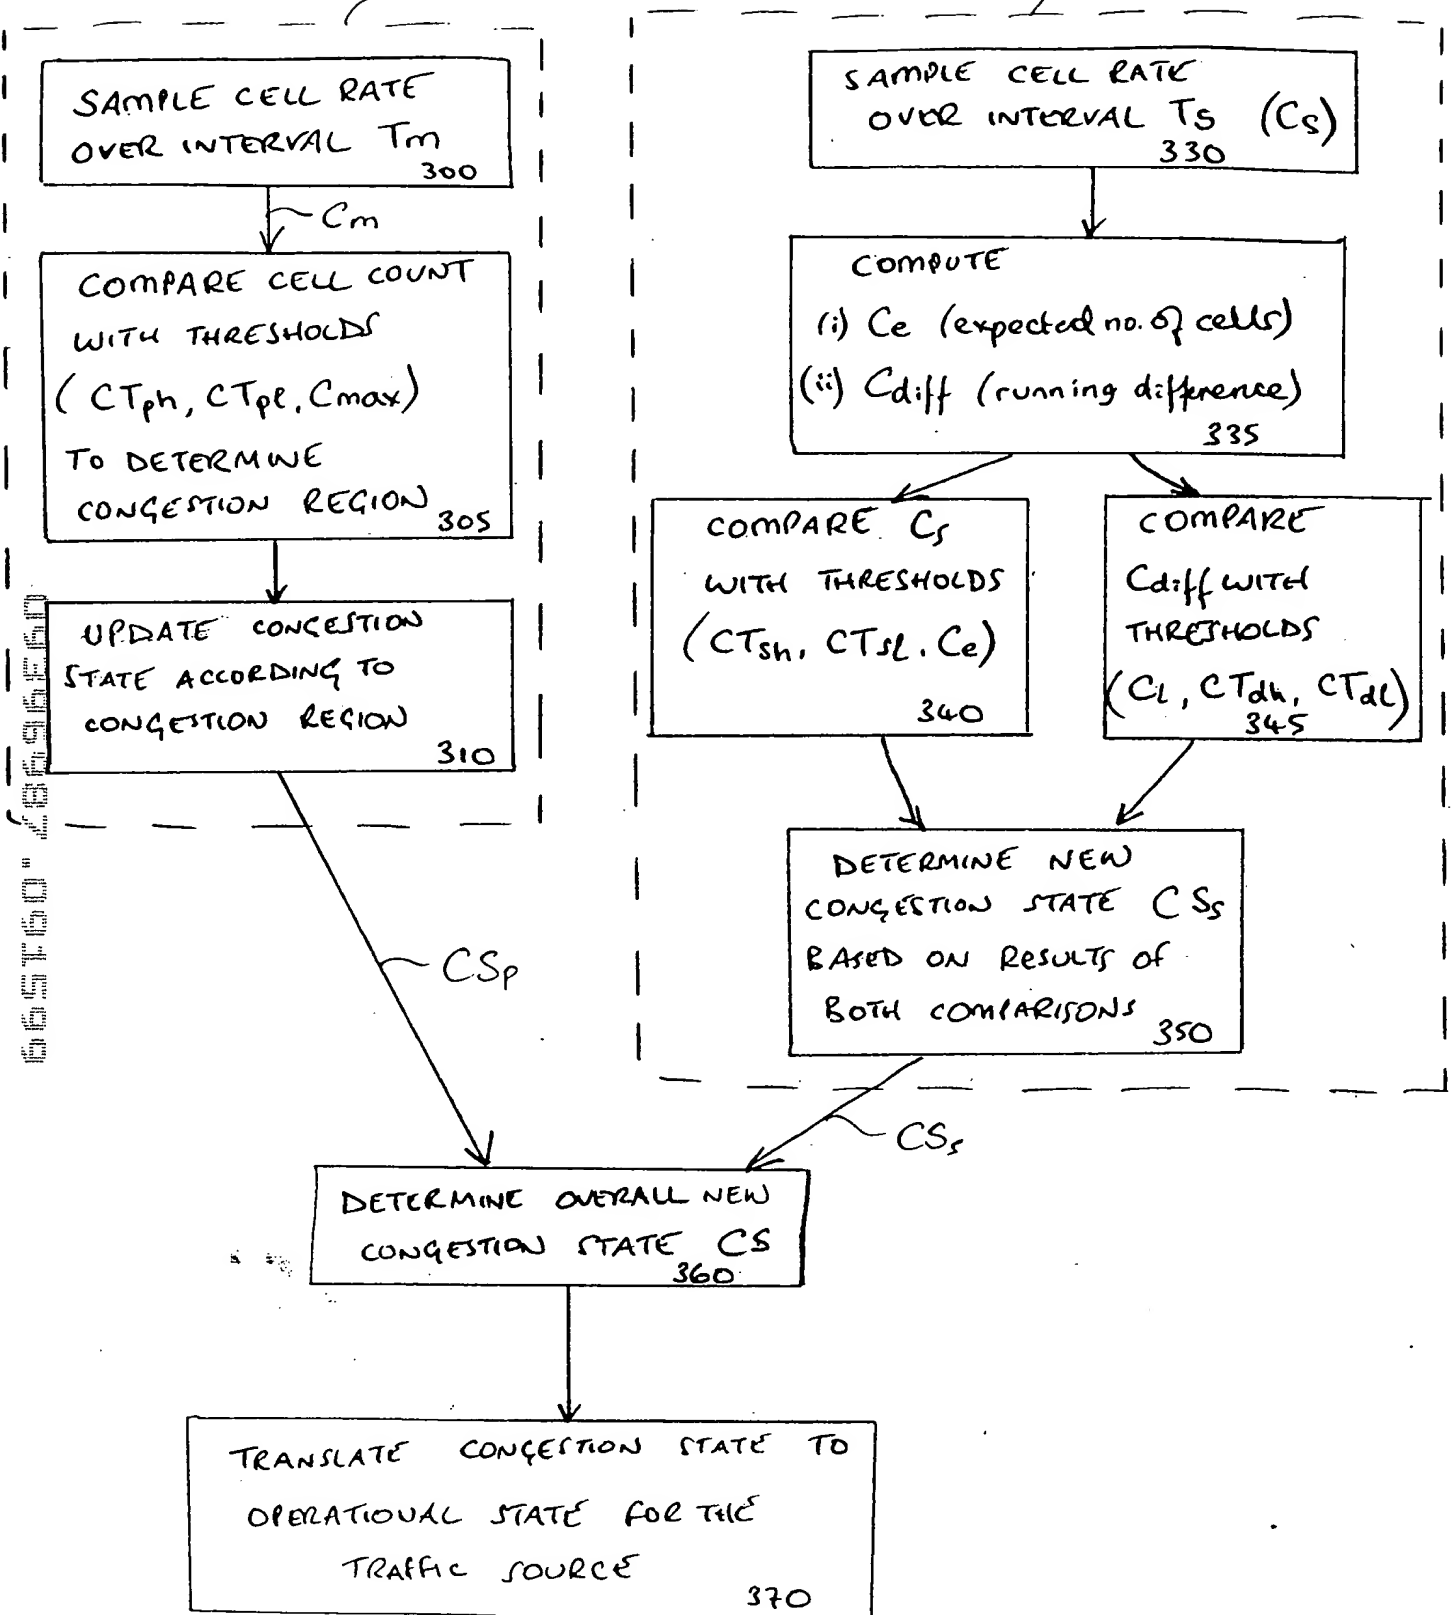 SAMPLE CELL RATE
OVER INTERVAL Tm
300
Cm
COMPARE CELL COUNT
WITH THRESHOLDS
(CTph, CTpl, Cmax)
TO DETERMINE
CONGESTION REGION
305
UPDATE CONGESTION
STATE ACCORDING TO
CONGESTION REGION
310
CSp
SAMPLE CELL RATE
OVER INTERVAL Ts (Cs)
330
COMPUTE
(i) Ce (expected no. of cells)
(ii) Cdiff (running difference)
335
COMPARE Cs
WITH THRESHOLDS
(CTsh, CTsl, Ce)
340
COMPARE
Cdiff WITH
THRESHOLDS
(CL, CTdh, CTdl)
345
DETERMINE NEW
CONGESTION STATE CSs
BASED ON RESULTS OF
BOTH COMPARISONS
350
CSs
DETERMINE OVERALL NEW
CONGESTION STATE CS
360
TRANSLATE CONGESTION STATE TO
OPERATIONAL STATE FOR THE
TRAFFIC SOURCE
370